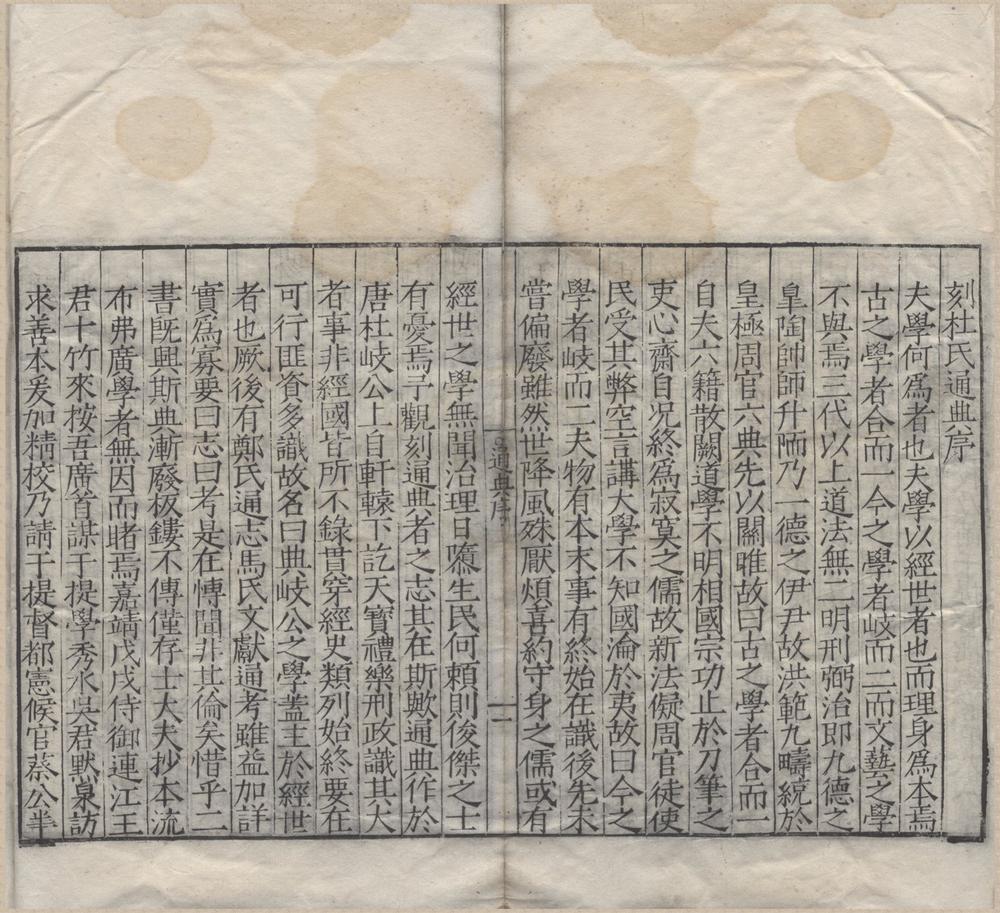 刻杜氏通典序
夫學何爲者也夫學以經世者也而理身爲本焉
古之學者合而一今之學者岐而二而文藝之學
不與焉三代以上道法無二明刑弼治即九德之
皐陶帥師升陑乃一德之伊尹故洪範九疇統於
皇極周官六典先以關雎故曰古之學者合而一
自夫六籍散闕道學不明相國宗功止於刀筆之
吏心齋自况終爲寂寞之儒故新法儗周官徒使
民受其弊空言講大學不知國淪於夷故曰今之
學者岐而二夫物有本末事有終始在識後先未
嘗偏廢雖然世降風殊厭煩喜約守身之儒或有
通典序
一
經世之學無聞治理日隳生民何頼則後傑之士
有憂焉予觀刻通典者之志其在斯歟通典作於
唐杜岐公上自軒轅下訖天寳禮樂刑政識其大
者事非經國皆所不錄貫穿經史類列始終要在
可行匪資多識故名曰典岐公之學蓋主於經世
者也厥後有鄭氏通志馬氏文獻通考雖益加詳
實爲寡要曰志曰考是在愽聞非其倫矣惜乎二
書旣興斯典漸廢板鏤不傳僅存士大夫抄本流
布弗廣學者無因而睹焉嘉靖戊戌侍御連江王
君十竹來按吾廣首謀于提學秀水吳君默泉訪
求善本爰加精校乃請于提督都憲候官蔡公半